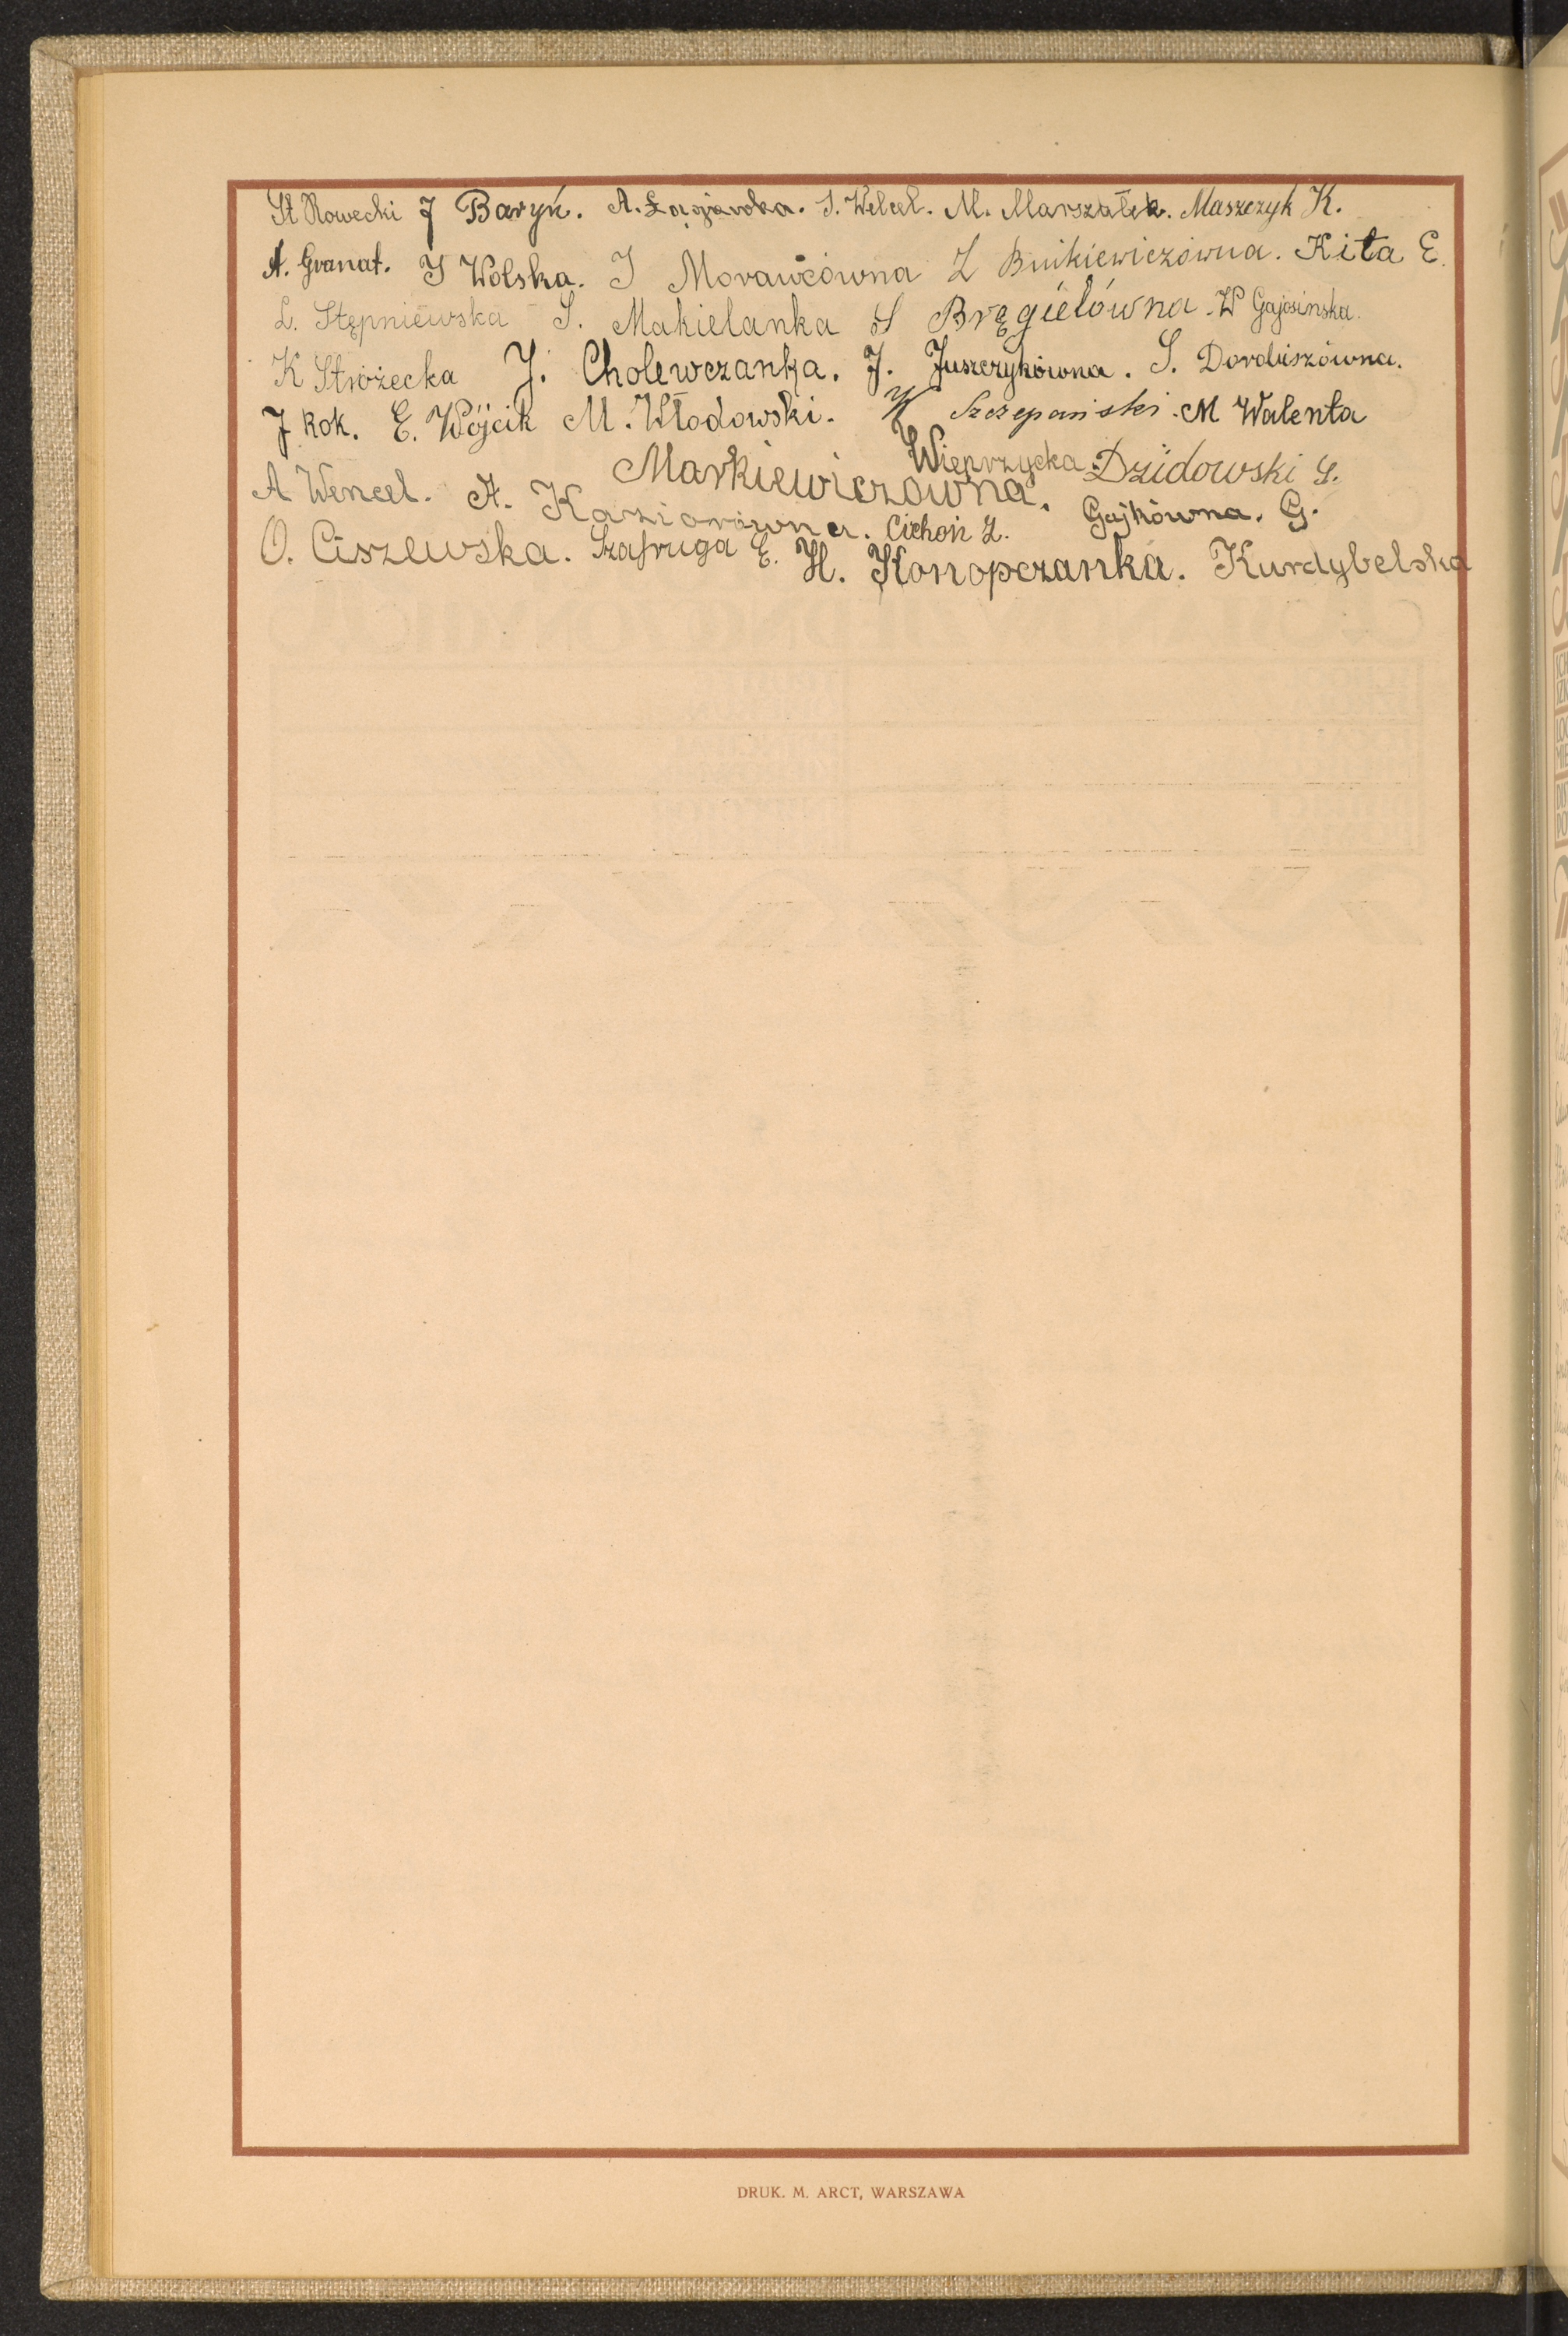 St Nowecki J Baryń. A. S. Welcel. M. Marszałek. Maszczyk K.
A. Granat. J Wolska. J Morawcówna Z Bnikiewiczówna. Kita E.
L. Stępniewska S. Makielanka S Bręgiełówna. W Gajosinska.
K Stróżecka J. Cholewczanka. J. Juszczykówna. S. Dorobiszówna.
J Kok. E. Wójcik M. Włodowski. W Szczepański. M Walenta
Markiewiczówna. Wieprzycka Dzidowski S.
A Wencel. A. Kaziorówna. Cichoń Z. Gajkówna. G.
O. Ciszewska. Szafruga E. H. Konopczanka. Kurdybelska
DRUK. M. ARCT, WARSZAWA